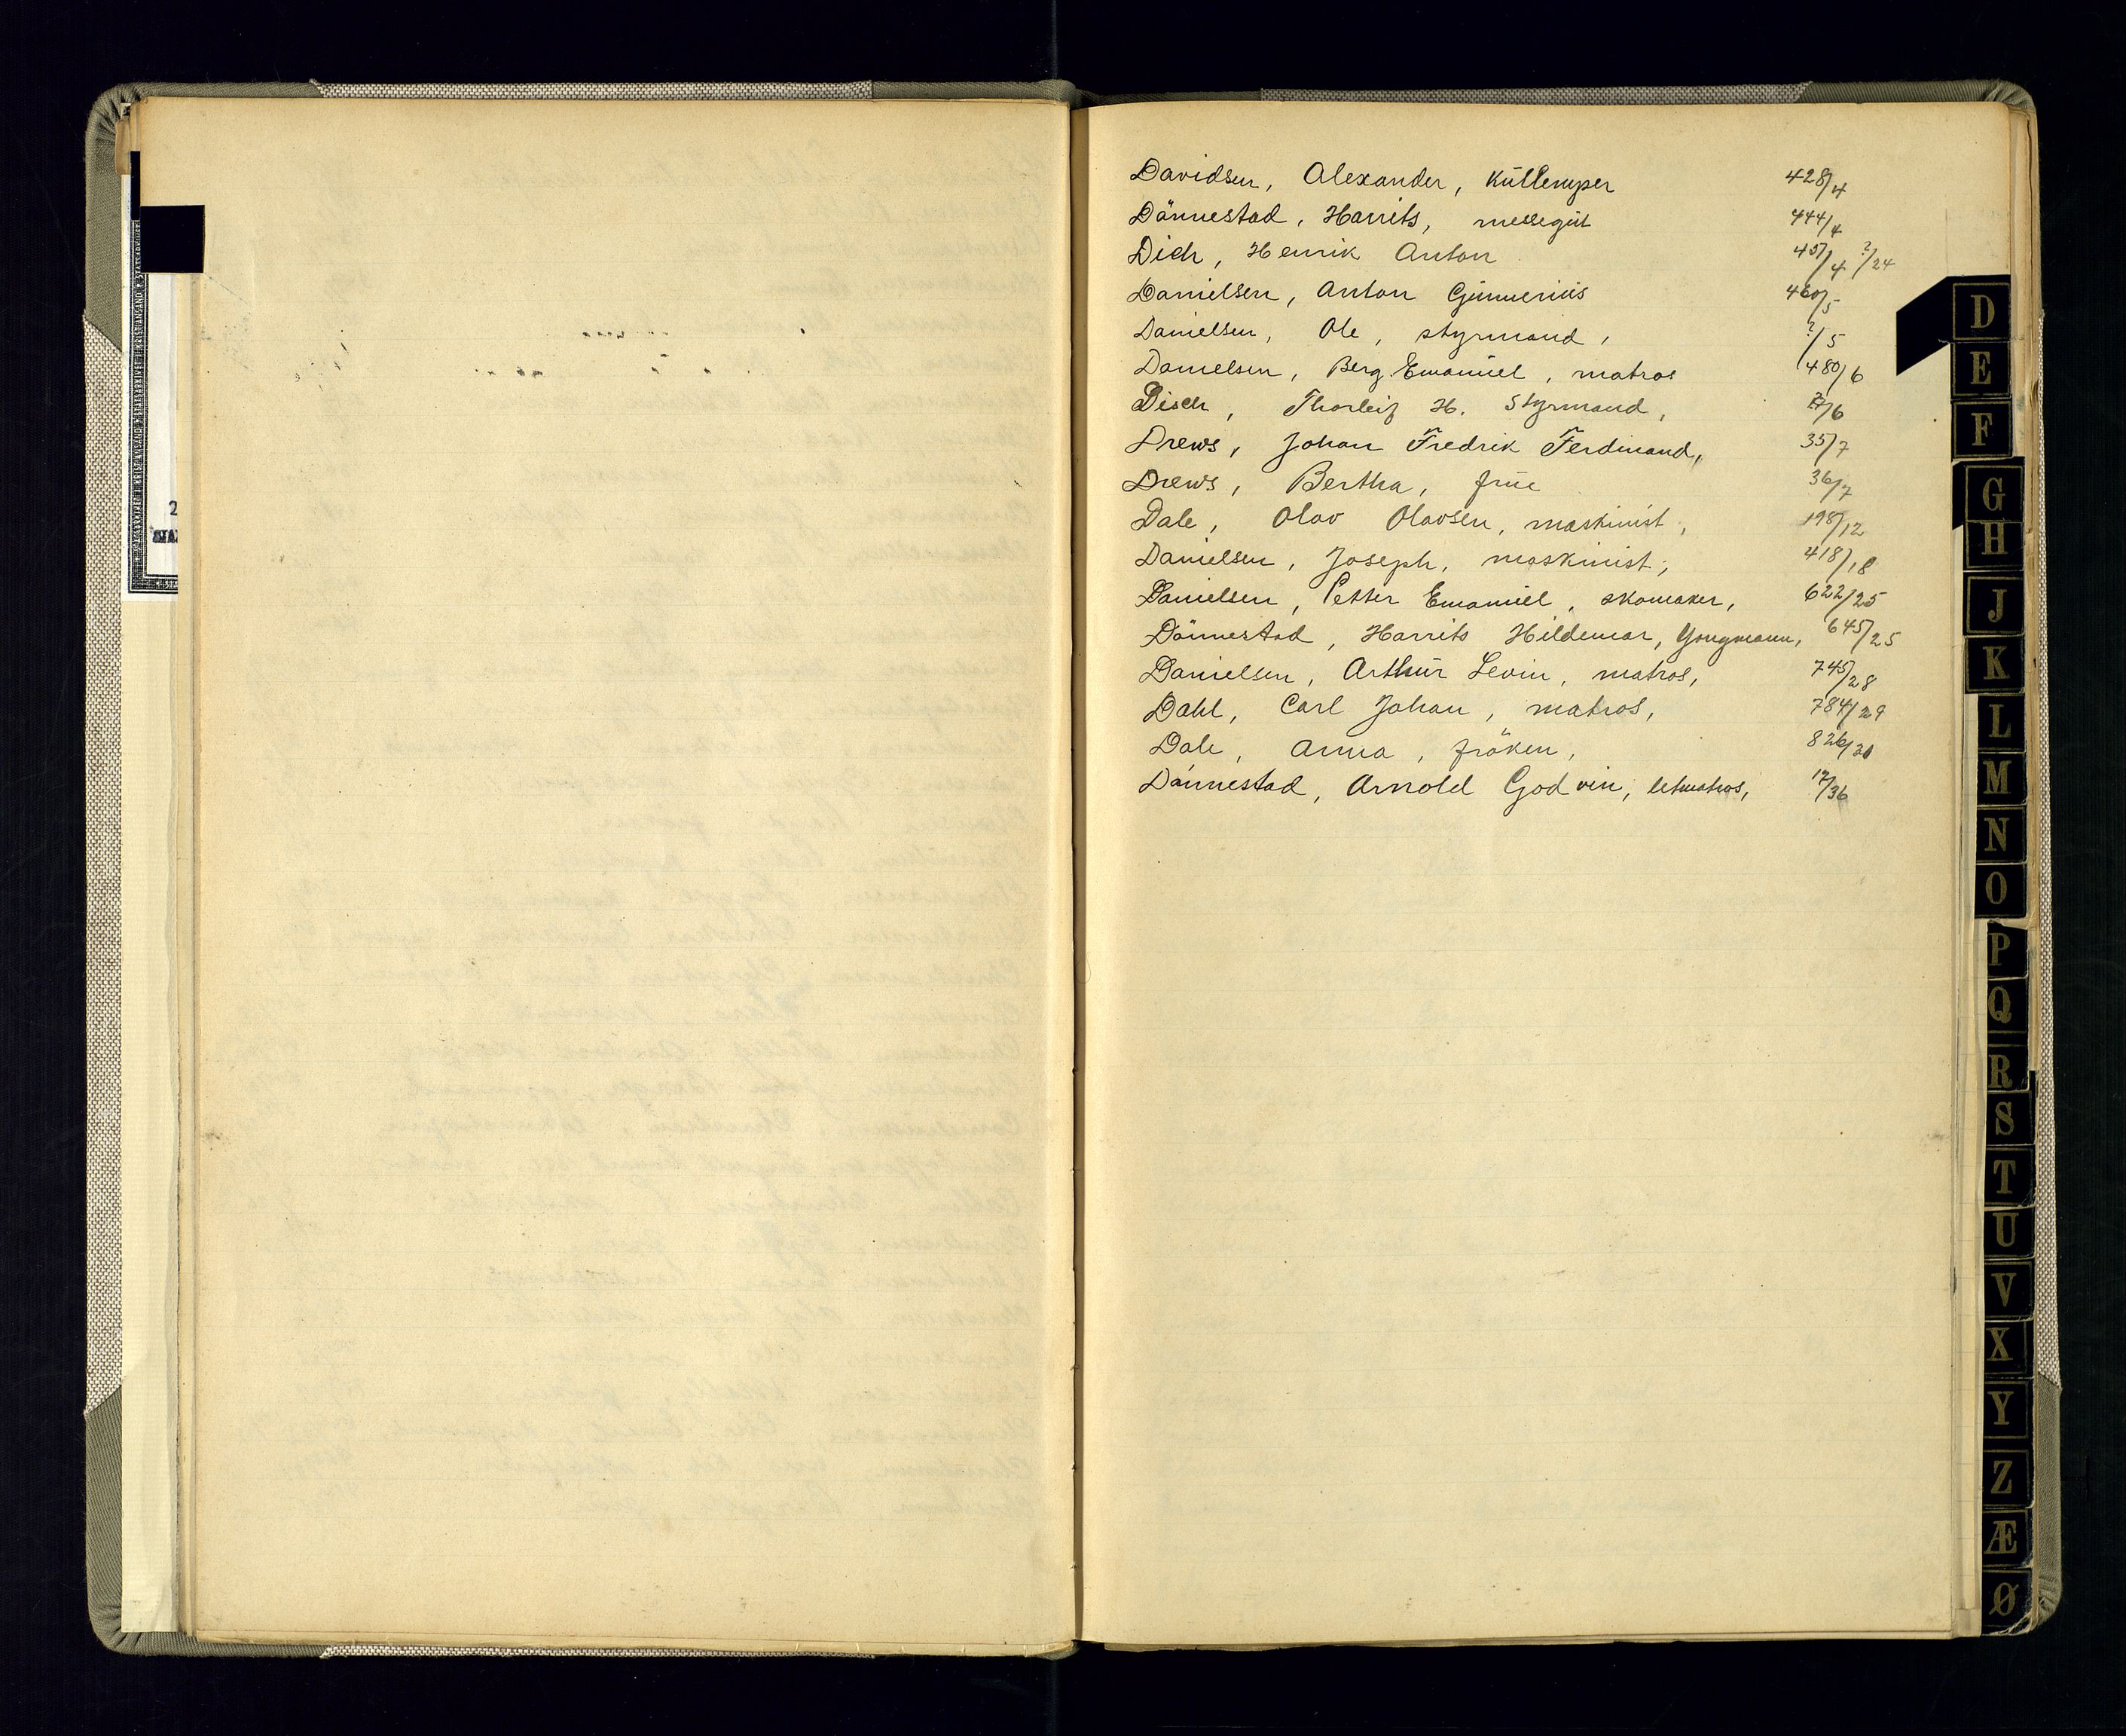 Davidsen, Alexander, Kullemper 428/4
Dännestad, Harrits, messegut 444/4
Dich, Henrik Anton 457/4 ?/24
Danielsen, Anton Gunnerius 460/5
Danielsen, Ole, styrmand, ?/5
Danielsen, Berg Emanuel, matros 480/6
Disch, Thorleif H. Styrmand, /6
Drews, Johan Fredrik Ferdinand, 35/7
Drews, Bertha, frue 36/7
Dale, Olav Olavsen, maskinist, 198/12
Danielsen, Joseph, maskinist, 418/18
Danielsen, Petter Emanuel, skomaker, 622/25
Dännestad, Harrits Hildemar, Yongmann, 645/25
Danielsen, Arthur Levin, matros, 745/28
Dahl, Carl Johan, matros, 784/29
Dale, Anna, fröken, 826/30
Dännestad, Arnold Godvin, letmatros, 17/36
D
E
F
G
H
J
K
L
M
N
O
P
Q
R
S
T
U
V
X
Y
Z
Æ
Ø